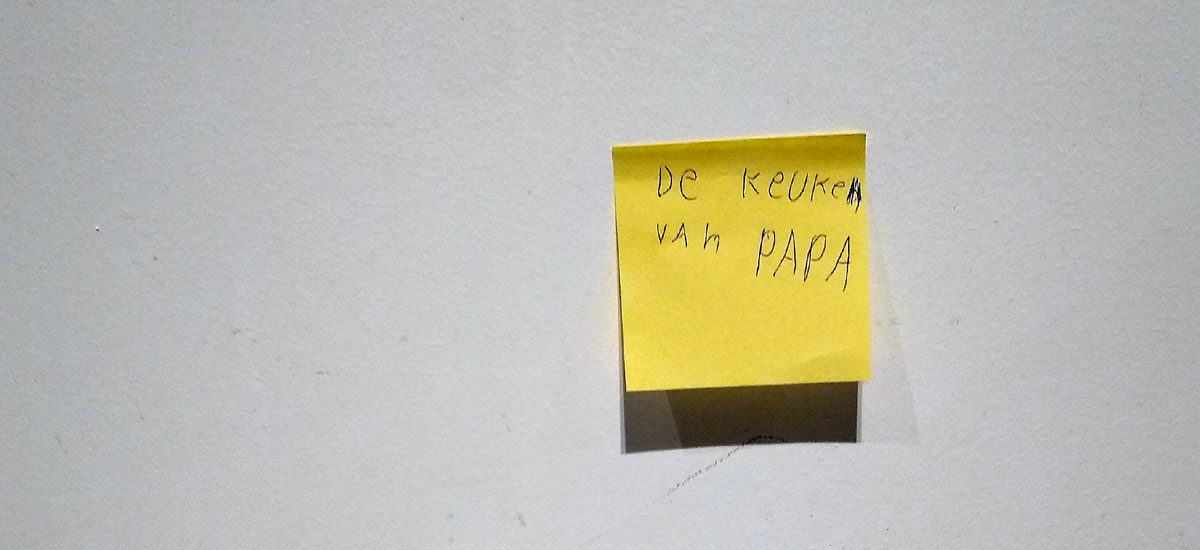 De KeUKeN
VAn PAPA